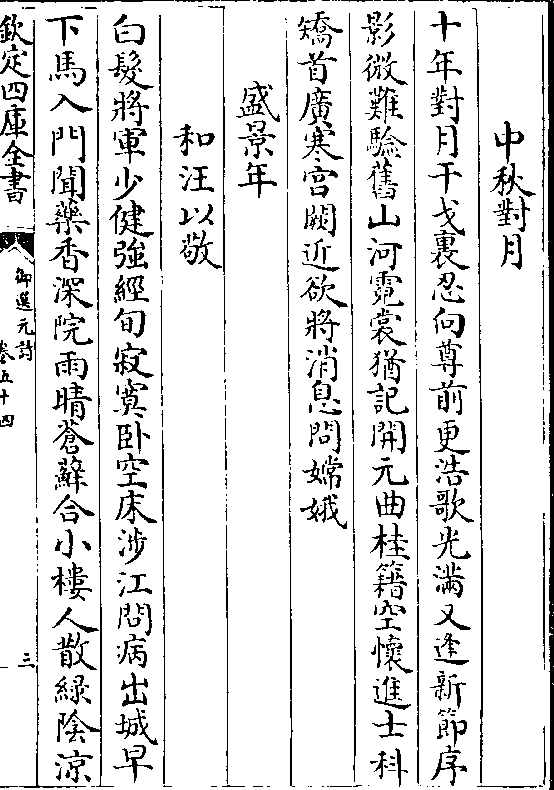 中秋對月
十年對月干戈裏忍向尊前更浩歌光滿又逢新節序
影微難驗舊山河霓裳猶記開元曲桂籍空懷進士科
矯首廣寒宮闕近欲將消息問嫦娥
盛景年
和汪以敬
白髮將軍少健強經旬寂寞卧空床涉江問病出城早
下馬入門聞藥香深院雨晴蒼蘚合小樓人散綠陰涼
欽定四庫全書
御選元詩
卷五十四
三